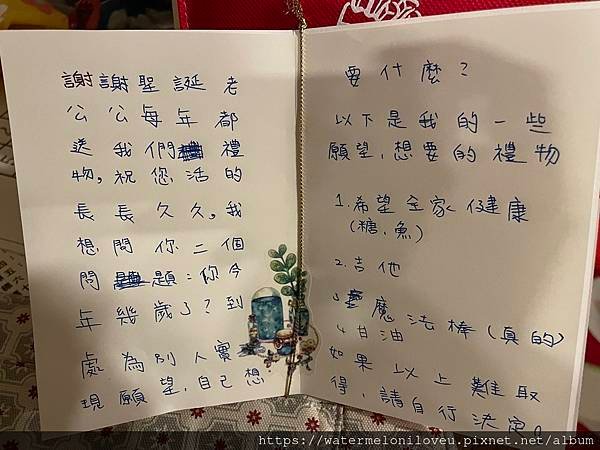 謝謝聖誕老
公公每年都
送我們禮
物,祝您活的
長長久久,我
想問你二個
問題:你今
年幾歲了?到
處為別人實
現願望,自己想
要什麼?
以下是我的一些
願望,想要的禮物
1.希望全家健康
(糖、魚)
2.吉他
3魔法棒(真的)
4甘油
如果以上難取
得,請自行決定。
https://watermeloniloveu.pixnet.net/album